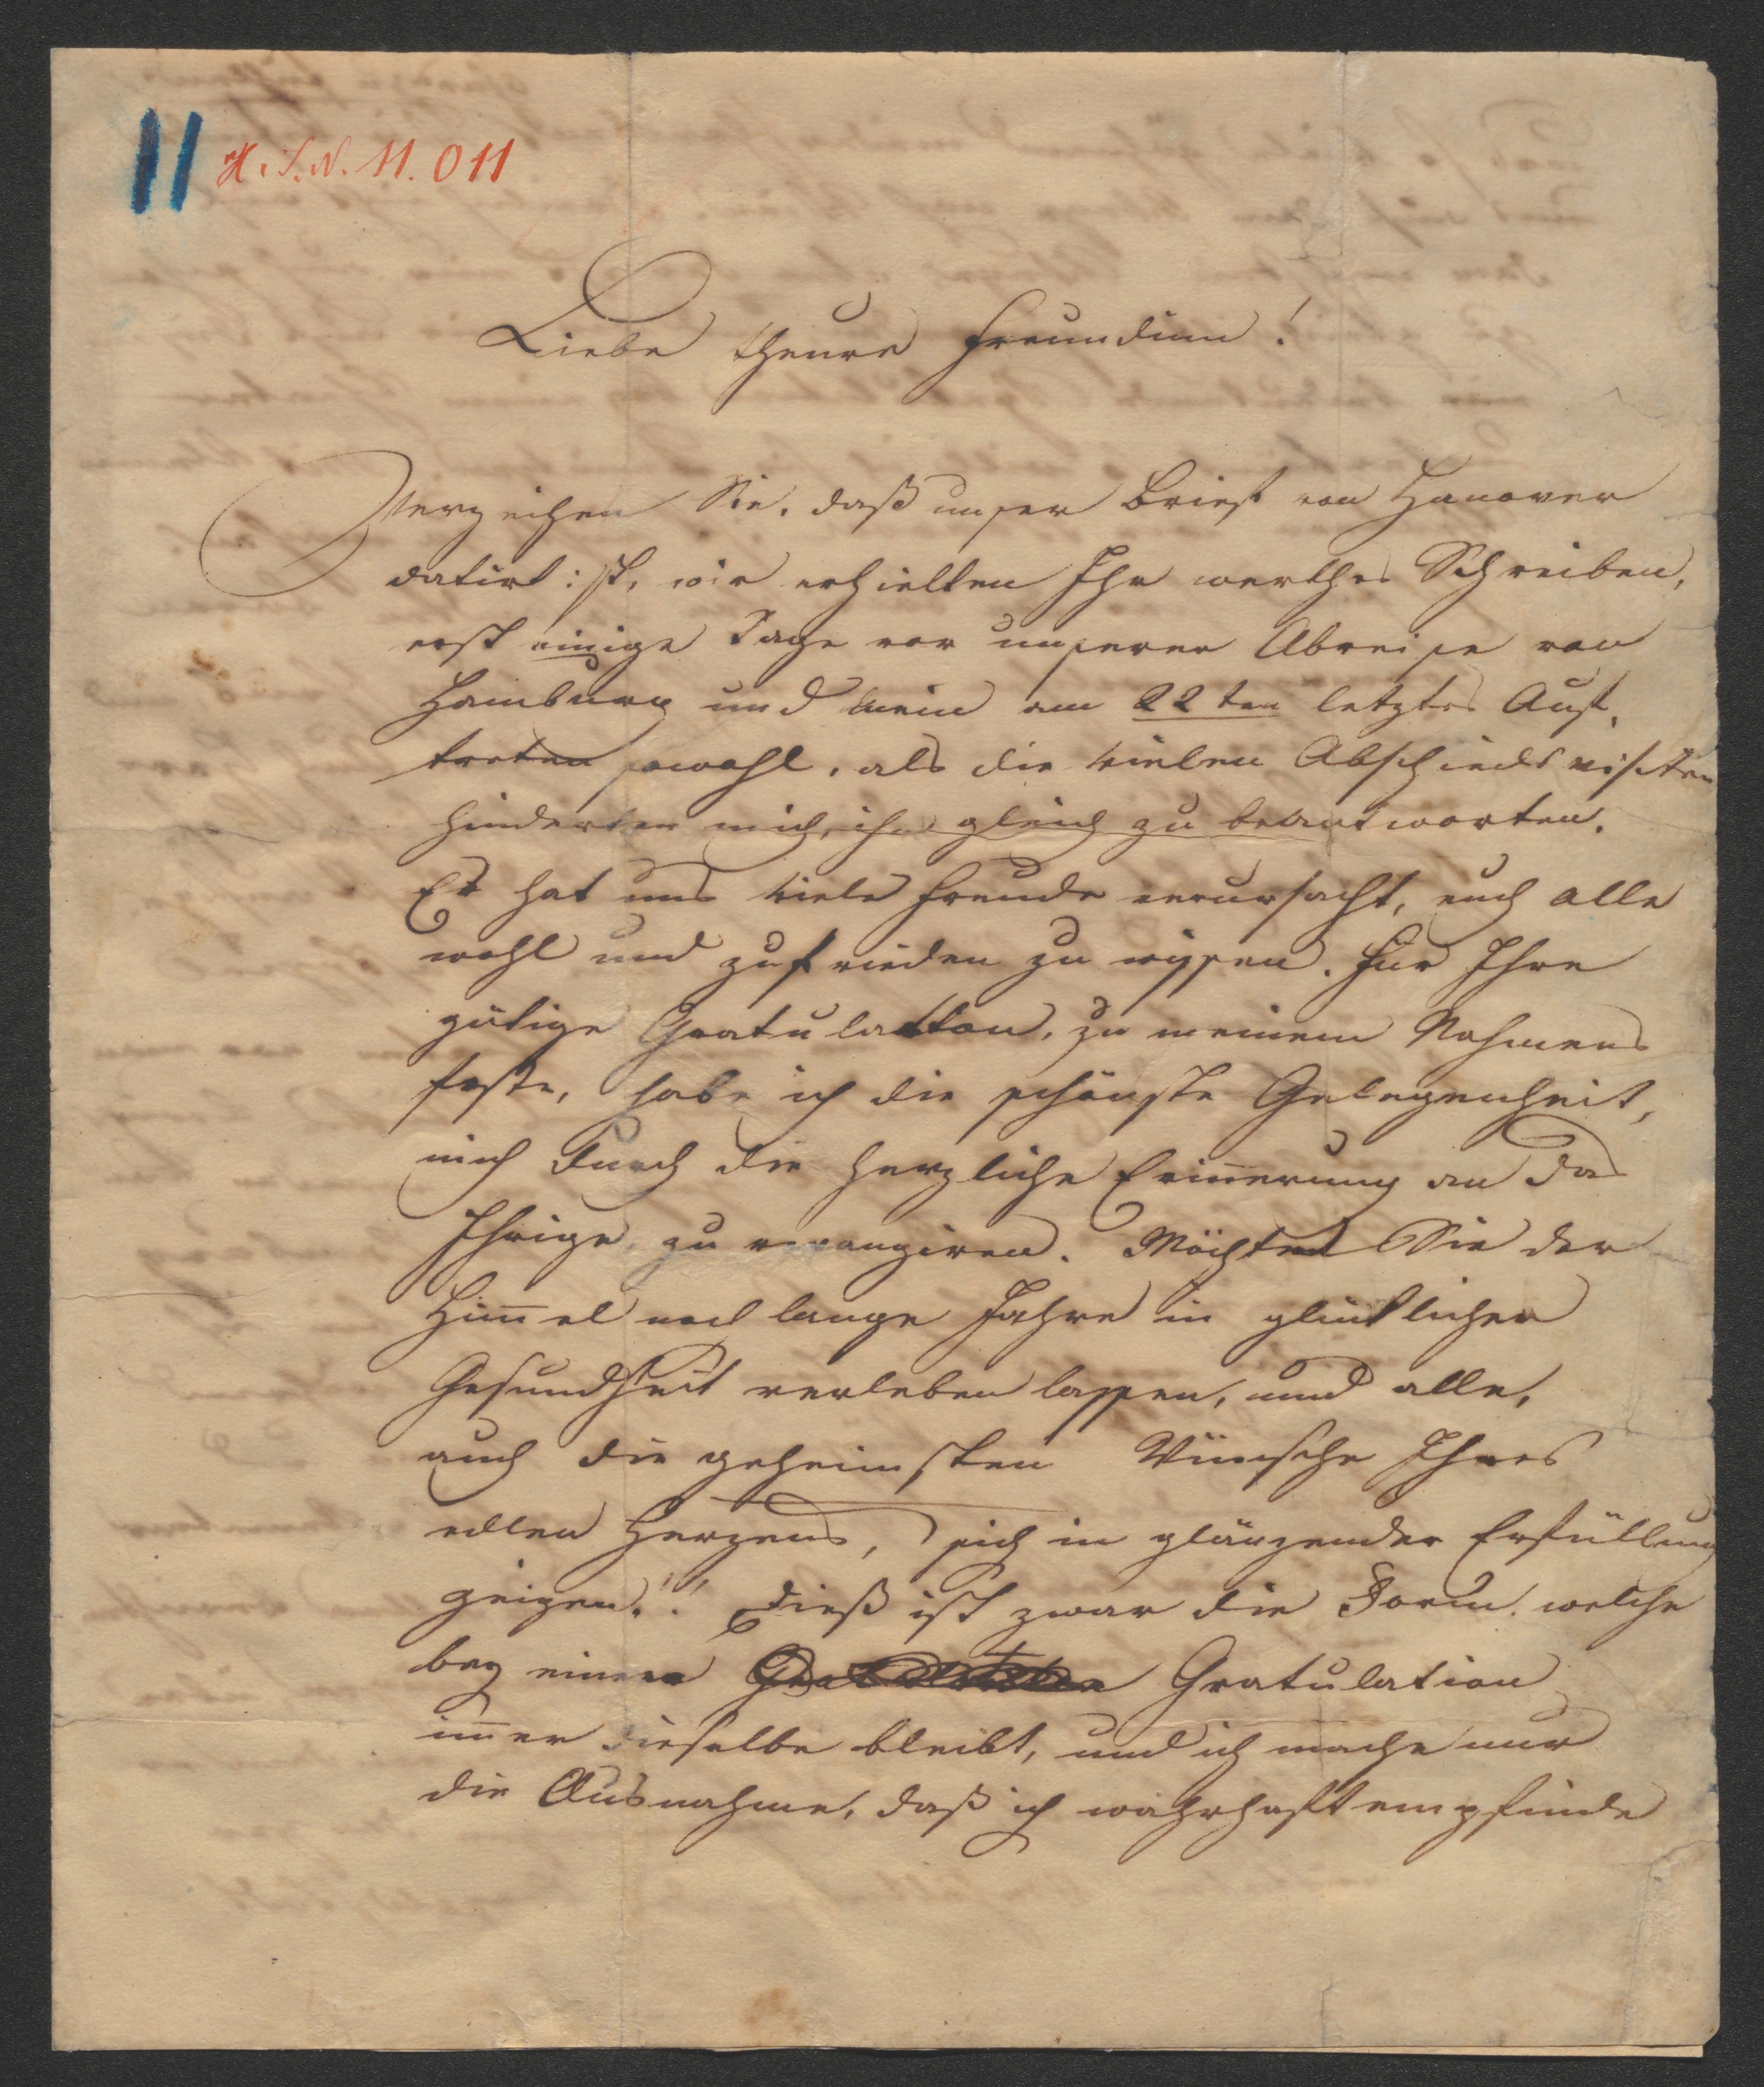 11 H.I.N. 11.011
Liebe theure Freundinn!
Verzeihen Sie, daß unser Brief von Hanover
datirt ist, wir erhielten Ihr werthes Schreiben,
erst einige Tage vor unserer Abreise von
Hamburg und mein am 22ten letztes Auf,
treten sowohl, als die vielen Abschieds visiten
hinderten mich, ihn gleich zu beantworten.
Es hat uns viele Freude verursacht, euch alle
wohl und zufrieden zu wissen. Für Ihre
gütige Gratulation, zu meinem Nahmens
feste, habe ich die schönste Gelegenheit,
mich durch die herzliche Erin̄erung an das
Ihrige, zu revangiren. Möchte Sie der
Him̄el noch lange Jahre in glücklicher
Gesundheit verleben lassen, und alle,
auch die geheimsten Wünsche Ihres
edlen Herzens, sich in glänzender Erfüllung
zeigen!! Dieß ist zwar die Form, welche
bey einer Gratulation
im̄er dieselbe bleibt, und ich mache nur
die Ausnahme, daß ich wahrhaft empfinde